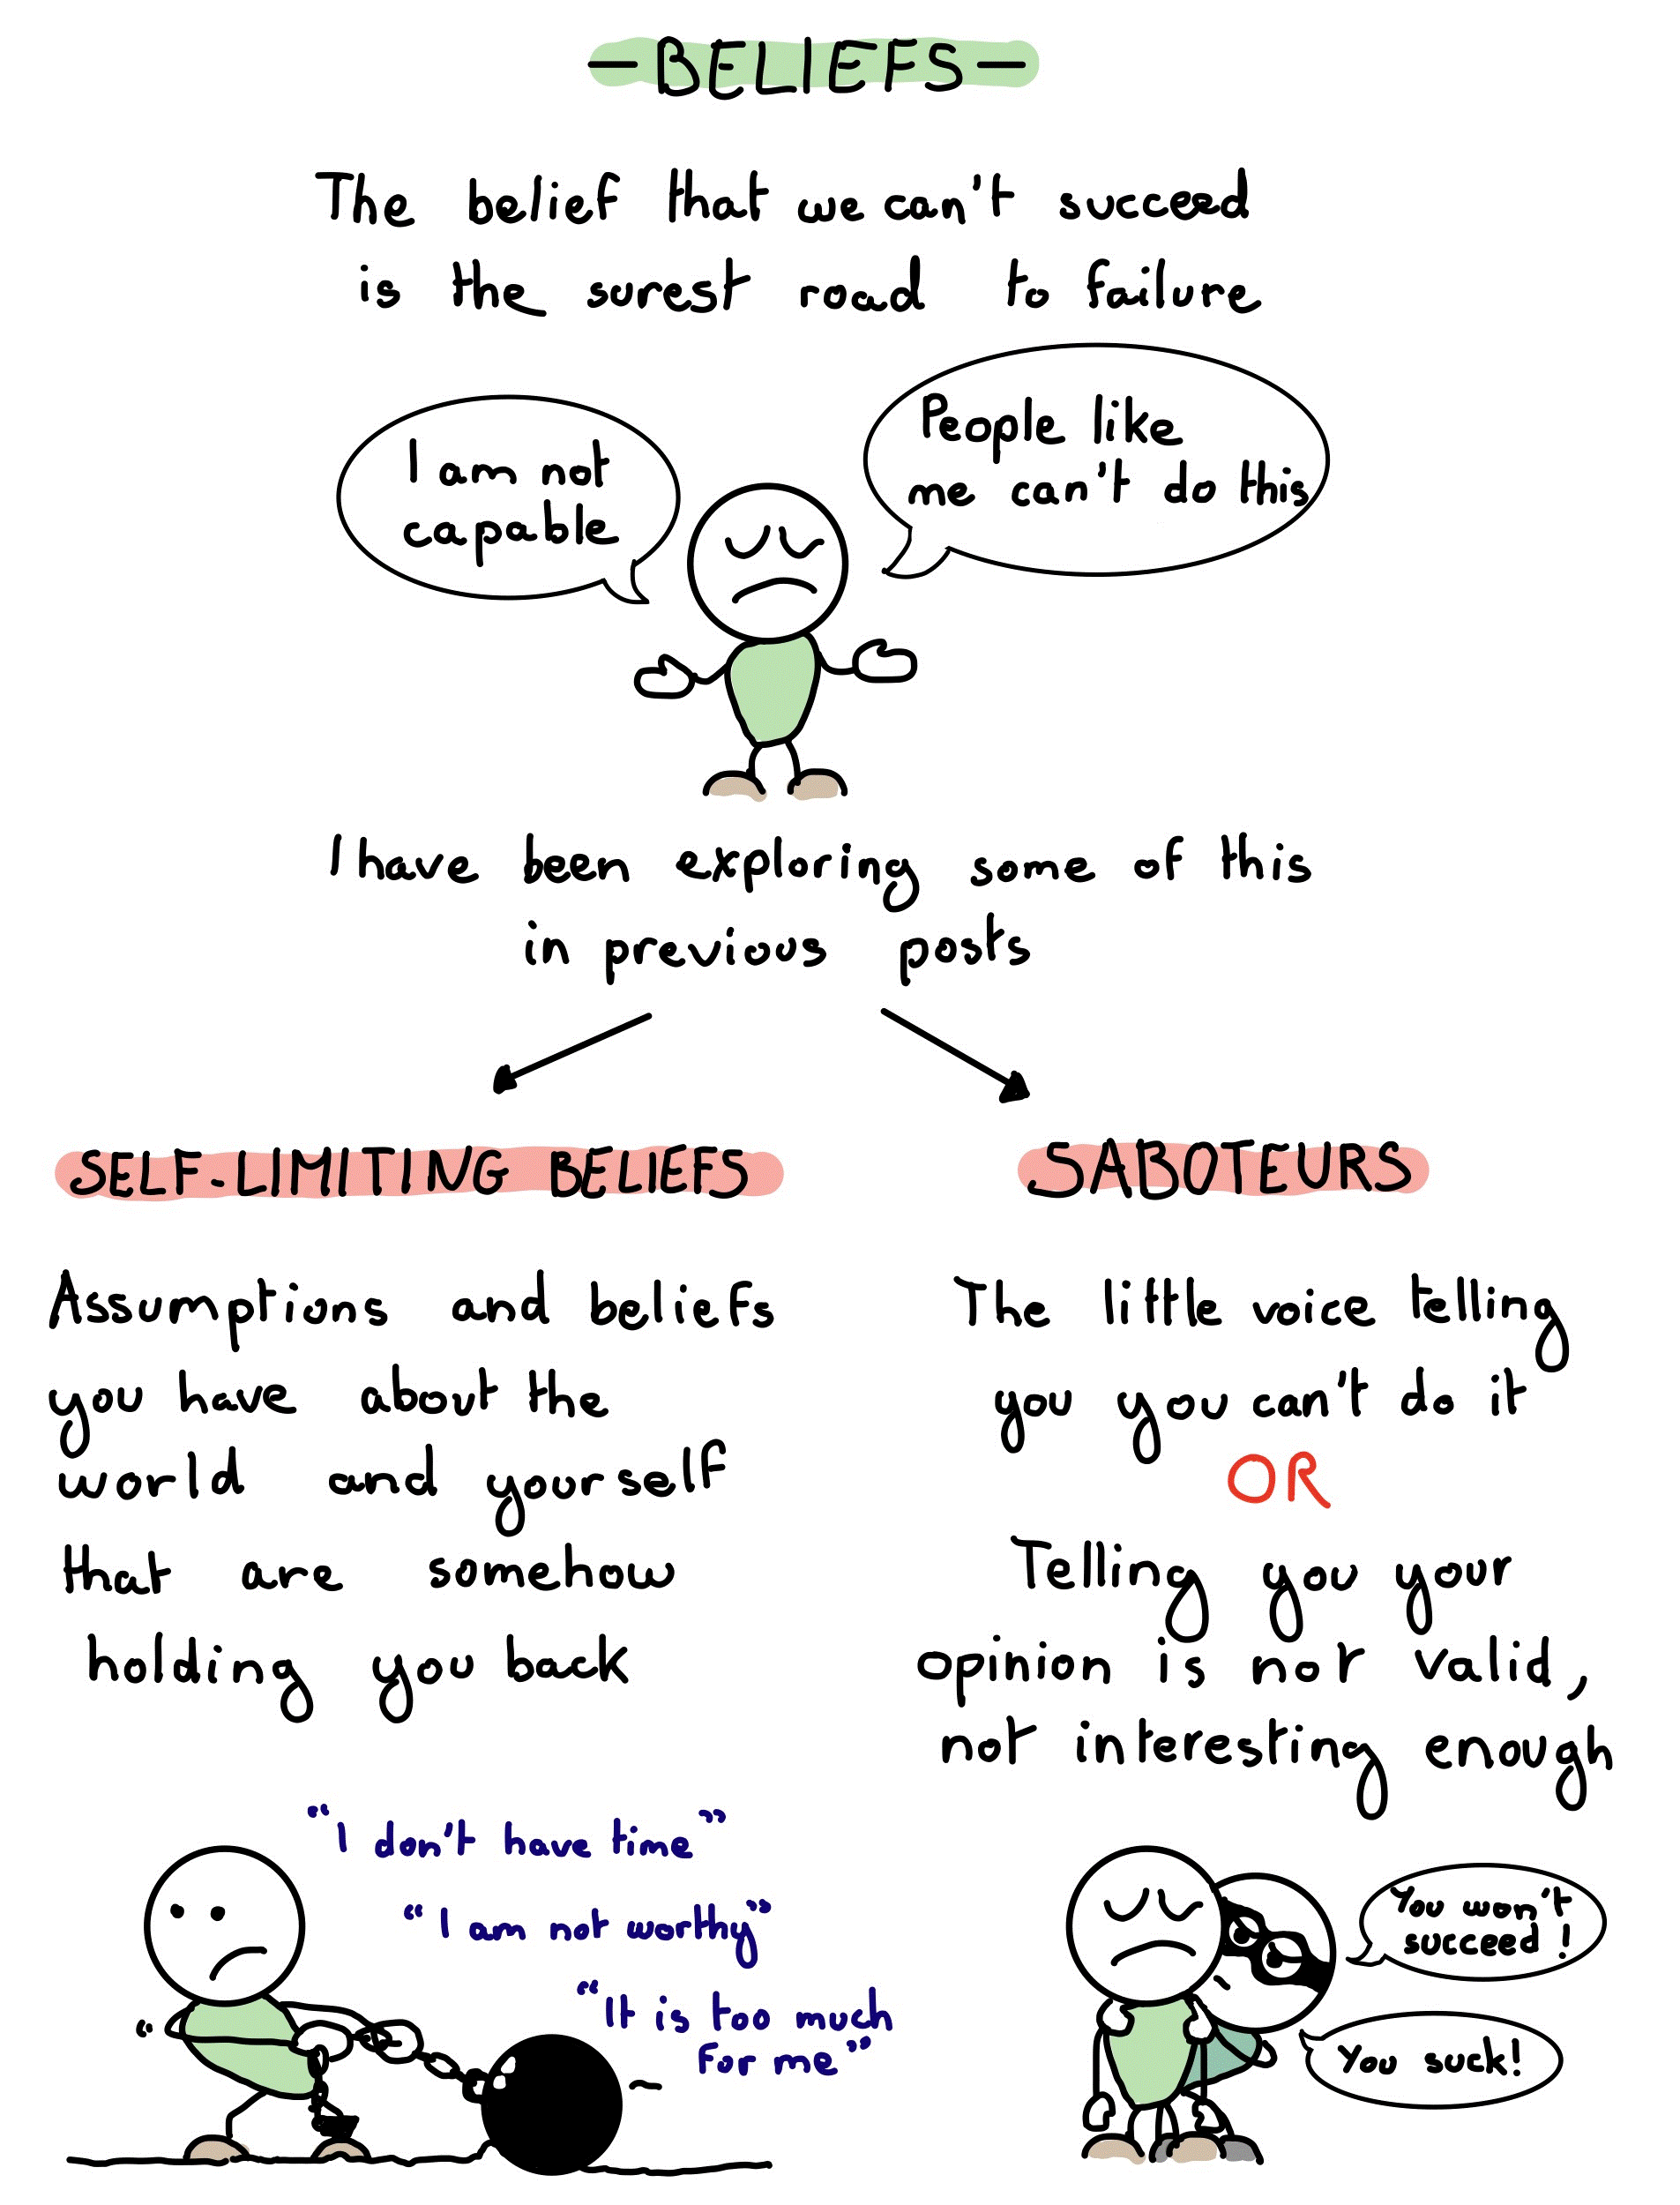 — BELIEFS —
The belief that we can't succeed
is the surest road to failure
I am not
capable
People like
me can't do this
I have been exploring some of this
in previous posts
SELF-LIMITING BELIEFS
Assumptions and beliefs
you have about the
world and yourself
that are somehow
holding you back
"I don't have time"
"I am not worthy"
"It is too much
for me"
SABOTEURS
The little voice telling
you you can't do it
OR
Telling you your
opinion is not valid,
not interesting enough
You won't
succeed!
You suck!